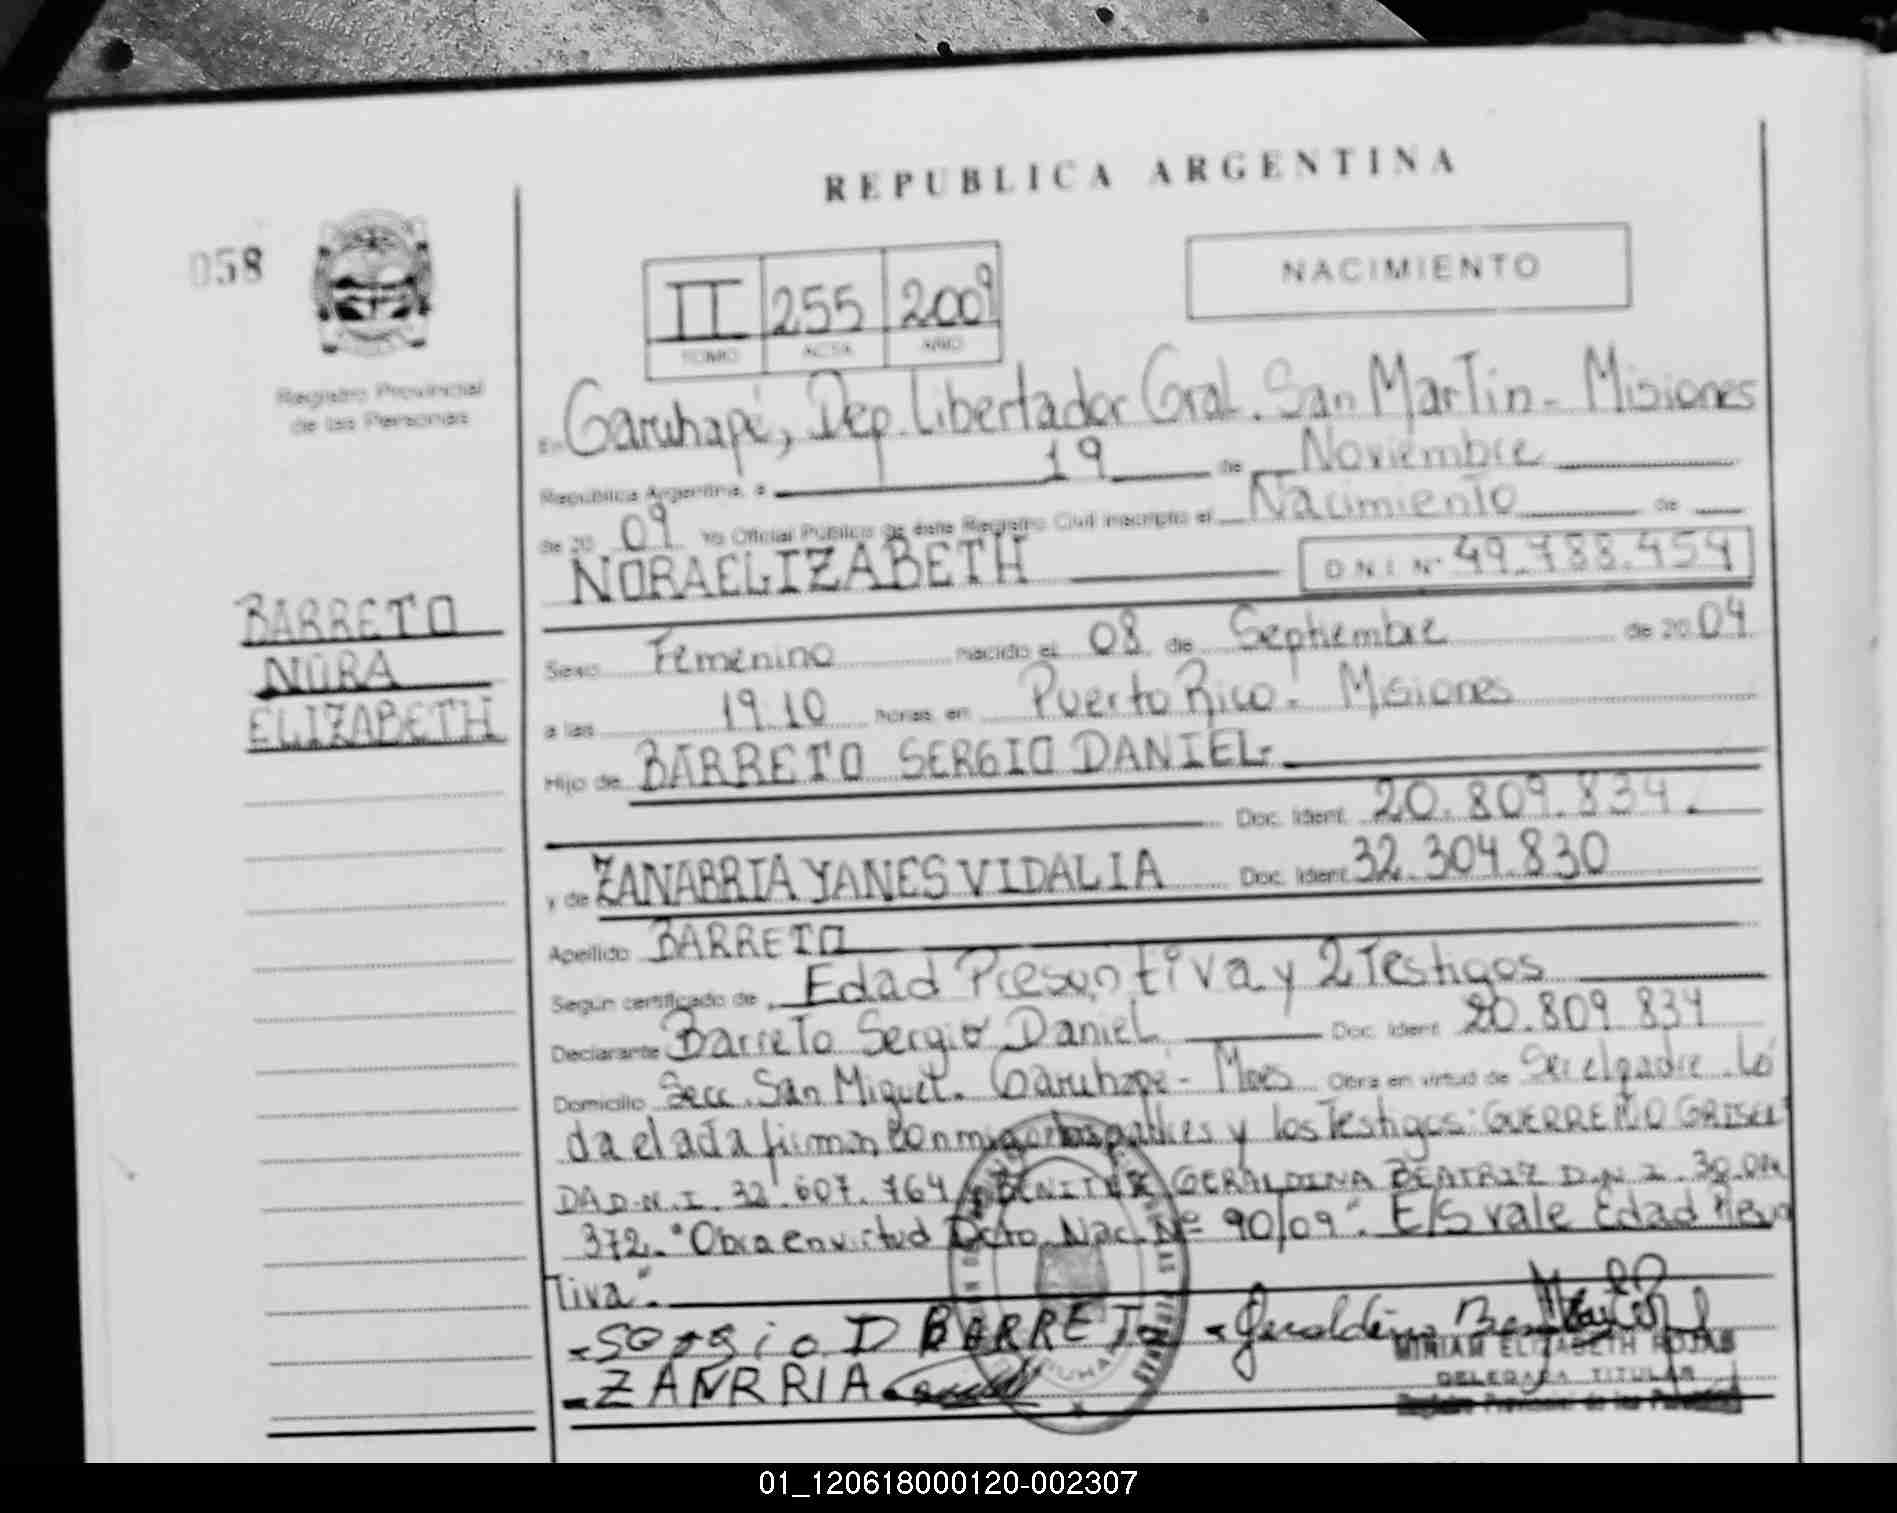 REPUBLICA ARGENTINA
058
NACIMIENTO
II 255 2009
TOMO ACTA AÑO
Registro Provincial
de las Personas
En Garuhapé, Dep. Libertador Gral. San Martin - Misiones
República Argentina, a 19 de Noviembre
de 20 09 Yo Oficial Público de éste Registro Civil inscripto el Nacimiento de
NORA ELIZABETH D N I Nº 49.788.454
BARRETO
NORA
ELIZABETH
Sexo Femenino nacido el 08 de Septiembre de 20 04
a las 19.10 horas en Puerto Rico. Misiones
Hijo de BARRETO SERGIO DANIEL.
Doc. Ident. 20.809.834.
y de ZANABRIA YANES VIDALIA Doc. Ident. 32.304.830
Apellido BARRETO
Según certificado de Edad Presuntiva y 2 Testigos
Declarante Barreto Sergio Daniel Doc. Ident. 20.809.834
Domicilio Secc. San Miguel. Garuhapé - Mnes Obra en virtud de Ser el padre. Leí
da el acta firman conmigo los padres y los Testigos: GUERREÑO GRISEL
DA D.N.I. 32.607.764 BENITEZ GERALDINA BEATRIZ D.N.I.
372. "Obra en virtud Dcto. Nac. Nº 90/09". E/S vale Edad Presun
tiva".
Sergio D BARRETO Geraldina
ZANRRIA
MIRIAM ELIZABETH ROJAS
DELEGADA TITULAR
Registro Provincial de las Personas
01_120618000120-002307